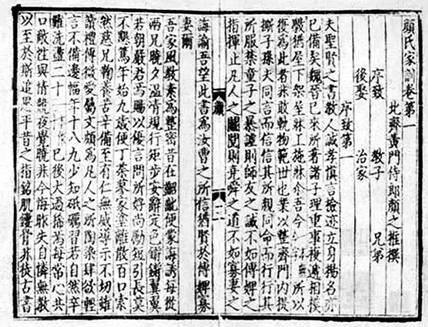 顔氏家訓卷第一
北齊黄門侍郎顔之推撰
序致 教子 兄弟
後娶 治家
序致第一
夫聖賢之書教人誠孝慎言檢迹立身揚名亦
已備矣魏晉已來所著諸子理重事複遞相模
斆猶屋下架屋牀上施牀耳吾今所以
復為此者非敢軌物範世也業以整齊門内提
撕子孫夫同言而信信其所親同命而行行其
所服禁童子之暴謔則師友之誡不如傅婢之
指揮止凡人之鬭鬩則堯舜之道不如寡妻之
誨諭吾望此書為汝曹之所信猶賢於傅婢寡
妻爾
吾家風教素為整密昔在齠齔便蒙誨誘每從
兩兄曉夕温凊規行矩步安辭定色鏘鏘翼翼
若朝嚴君焉賜以優言問所好尚勵短引長莫
不懇篤年始九歲便丁荼蓼家塗離散百口索
然慈兄鞠養苦辛備至有仁無威導示不切雖
讀禮傳微愛屬文頗為凡人之所陶染肆欲輕
言不備邊幅年十八九少知砥礪習若自然卒
難洗盪二十已後大過稀焉每常心共
口敵性與情競夜覺曉非今悔昨失自憐無教
以至於斯追思平昔之指銘肌鏤骨非徒古書